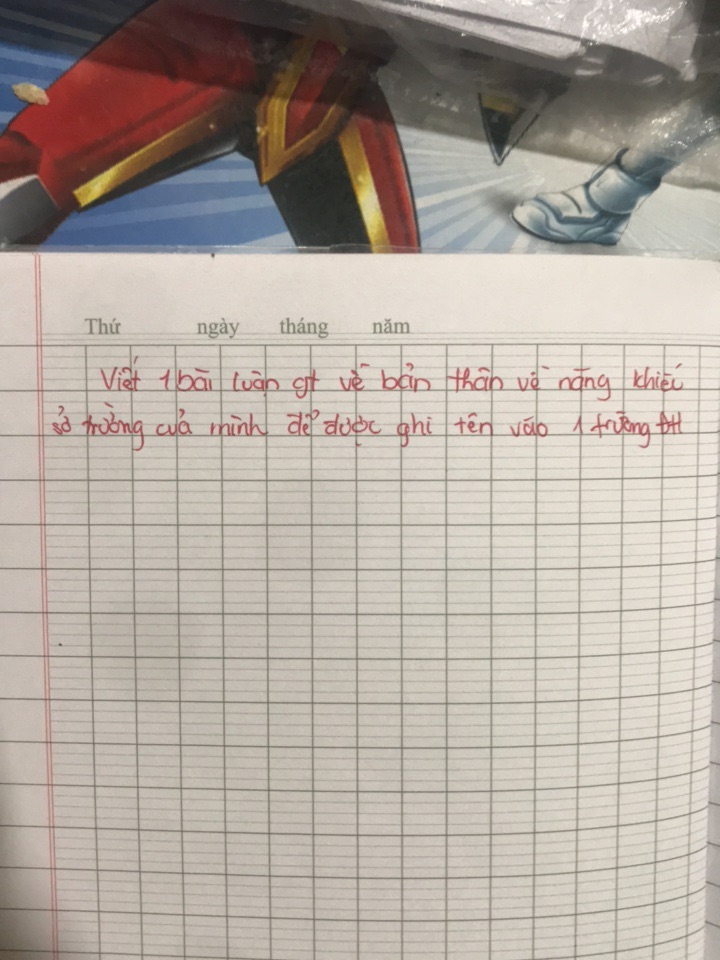 Thứ ngày tháng năm
Viết 1 bài luận gt về bản thân về năng khiếu
sở trường của mình để được ghi tên vào 1 trường ĐH